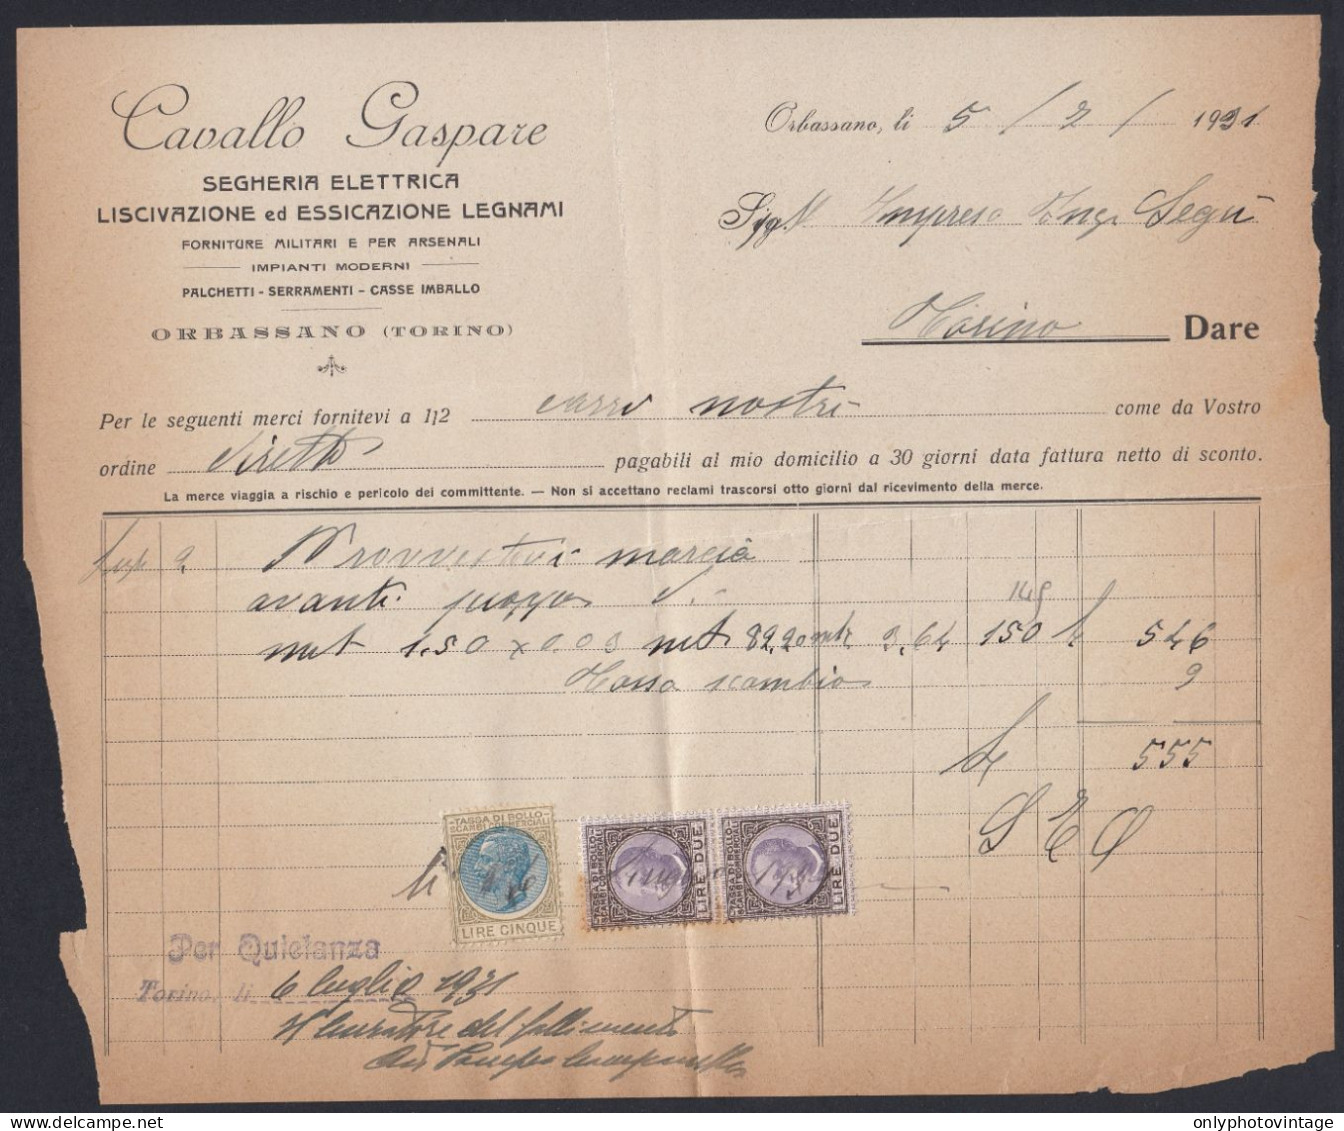 Cavallo Gaspare
SEGHERIA ELETTRICA
LISCIVAZIONE ed ESSICAZIONE LEGNAMI
FORNITURE MILITARI E PER ARSENALI
IMPIANTI MODERNI
PALCHETTI - SERRAMENTI - CASSE IMBALLO
ORBASSANO (TORINO)
Orbassano, li 5 / 2 / 1931
Sig. Impresa Ing. Segù
Torino Dare
Per le seguenti merci fornitevi a 1|2 carri nostri come da Vostro
ordine diretto pagabili al mio domicilio a 30 giorni data fattura netto di sconto.
La merce viaggia a rischio e pericolo dei committente. — Non si accettano reclami trascorsi otto giorni dal ricevimento della merce.
2 Provvistovi marcia
avanti
148
met 1.50 x 0.03 met 82,20 3,64 150 546
Tassa scambio 9
L 555
S E O
TASSA DI BOLLO
SCAMBI COMMERCIALI
LIRE CINQUE
TASSA DI BOLLO
SCAMBI COMMERCIALI
LIRE DUE
TASSA DI BOLLO
SCAMBI COMMERCIALI
LIRE DUE
Per Quietanza
Torino, li 6 luglio 1931
Il Curatore del fallimento
onlyphotovintage.com